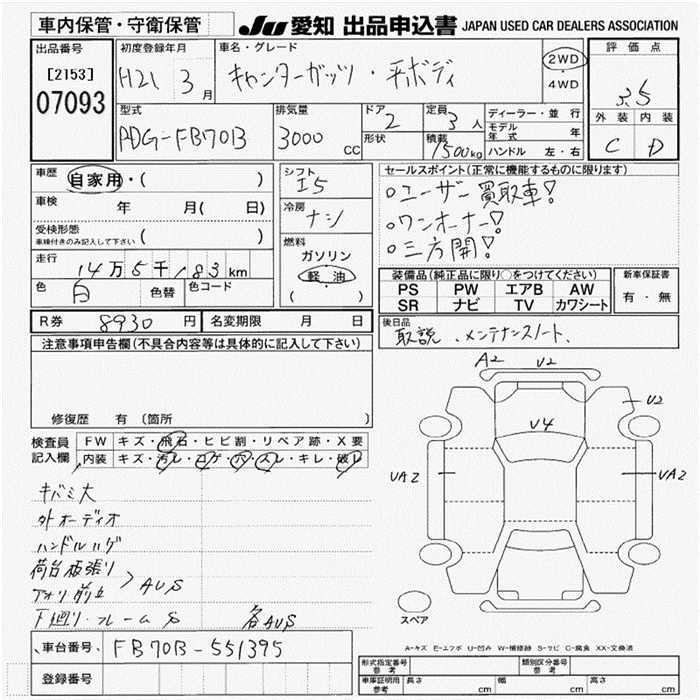 車内保管・守衛保管 JU 愛知 出品申込書 JAPAN USED CAR DEALERS ASSOCIATION
出品番号 初度登録年月 車名・グレード 評価点
[2153] H21 3月 キャンターガッツ・平ボディ 2WD・4WD 3.5
07093
型式 排気量 ドア 定員 ディーラー・並行 外装 内装
PDG-FB70B 3000cc 2 3人 モデル年式 年 C D
形状 積載 1500kg ハンドル 左・右
車歴 自家用・( ) シフト I5 セールスポイント(正常に機能するものに限ります)
車検 年 月( 日) 冷房 ナシ ○ユーザー買取車!
受検形態 車検付きのみ記入して下さい ( ) ○ワンオーナー!
燃料 ○三方開!
走行 14万5千183km ガソリン 軽油 ( )
色 白 色替 色コード
装備品(純正品に限り○をつけてください) 新車保証書
PS PW エアB AW 有・無
SR ナビ TV カワシート
R券 8930円 名変期限 月 日 後日品
取説、メンテナンスノート、
注意事項申告欄(不具合内容等は具体的に記入して下さい)
修復歴 有(箇所
A2 U2
U2
U4
UA2 UA2
検査員記入欄 FW キズ・飛石・ヒビ割・リペア跡・X要
内装 キズ・汚レ・コゲ・穴・スレ・キレ・破レ
キバミ大
外オーディオ
ハンドルハゲ
荷台板張り
アオリ前立 > AUS
下廻り・フレームS 各AUS
スペア
A-キズ E-エクボ U-凹み W-補修跡 S-サビ C-腐食 XX-交換済
車台番号 FB70B-551395
登録番号
形式指定番号 参考 類別区分番号 参考
車庫証明用 参考 長さ cm 幅 cm 高さ cm